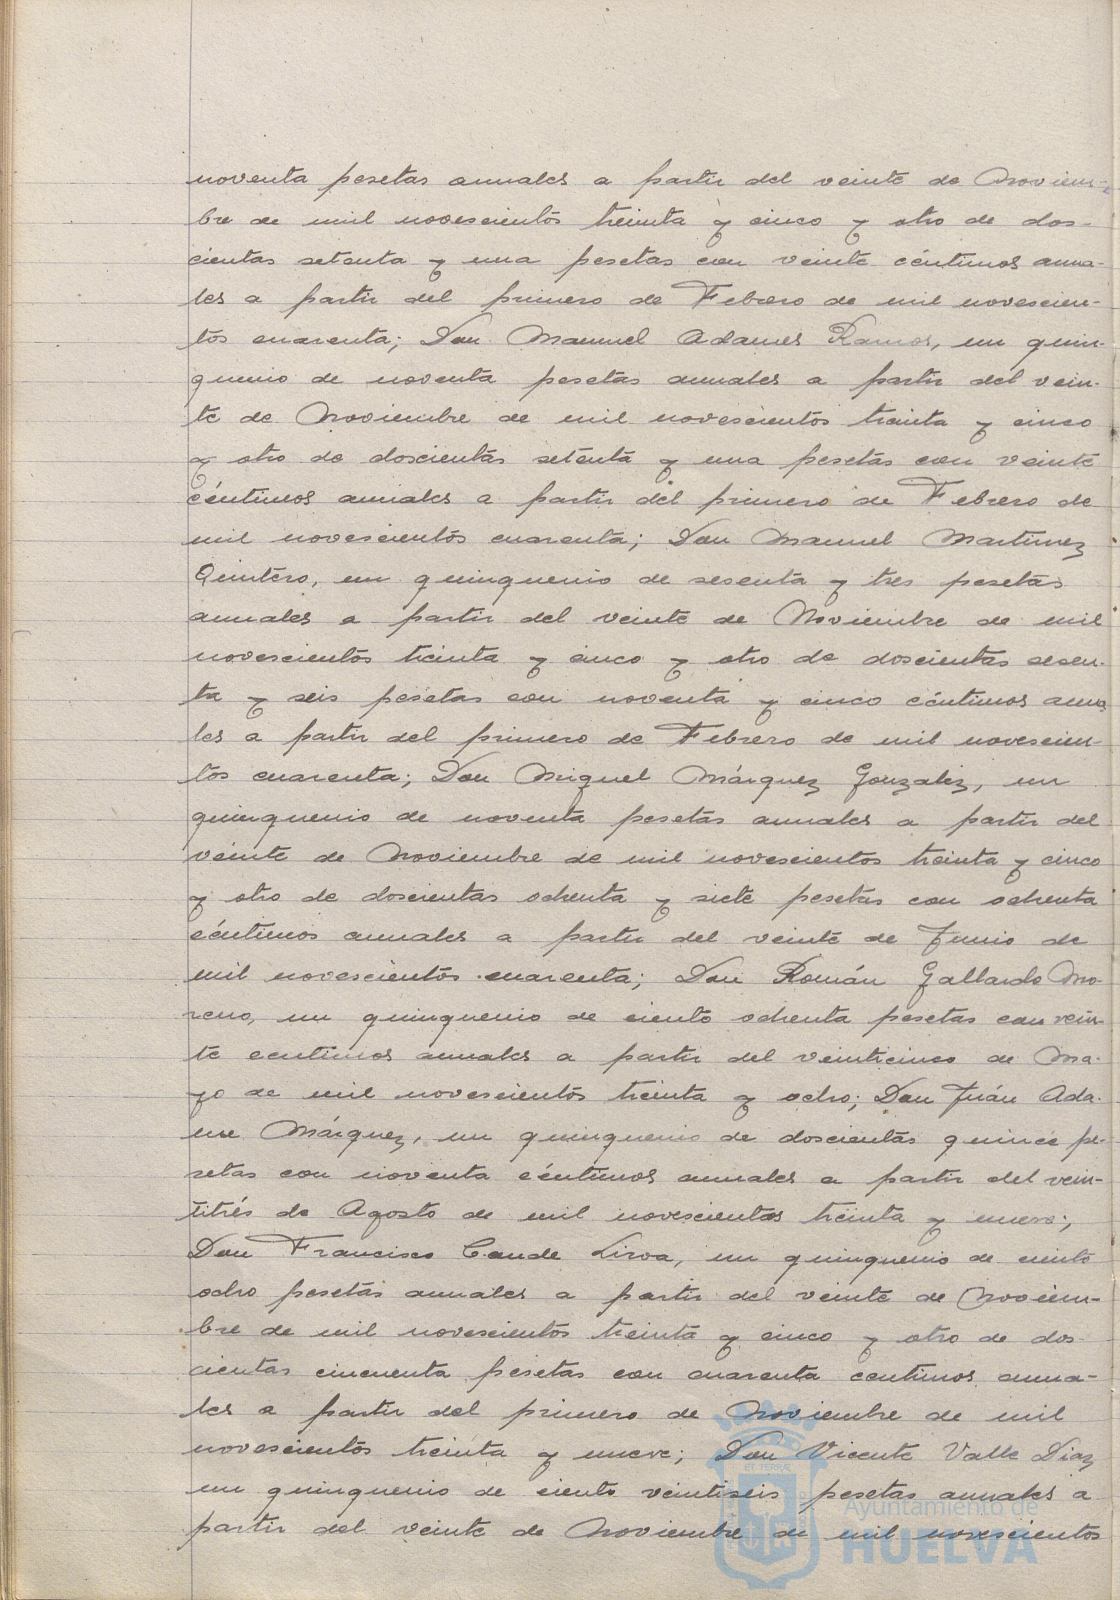 noventa pesetas anuales a partir del veinte de Noviem-
bre de mil novescientos treinta y cinco y otro de dos-
cientas setenta y una pesetas con veinte céntimos anua-
les a partir del primero de Febrero de mil novescien-
tos cuarenta; Don Manuel Adames Ramos, un quin-
quenio de noventa pesetas anuales a partir del vein-
te de Noviembre de mil novescientos treinta y cinco
y otro de doscientas setenta y una pesetas con veinte
céntimos anuales a partir del primero de Febrero de
mil novescientos cuarenta; Don Manuel Martinez
Quintero, un quinquenio de sesenta y tres pesetas
anuales a partir del veinte de Noviembre de mil
novescientos treinta y cinco y otro de doscientas sesen-
ta y seis pesetas con noventa y cinco céntimos anua
les a partir del primero de Febrero de mil novescien-
tos cuarenta; Don Miguel Márquez Gonzalez, un
quinquenio de noventa pesetas anuales a partir del
veinte de Noviembre de mil novescientos treinta y cinco
y otro de doscientas ochenta y siete pesetas con ochenta
céntimos anuales a partir del veinte de Junio de
mil novescientos cuarenta; Don Román Gallardo Mo-
reno, un quinquenio de ciento ochenta pesetas con vein-
te centimos anuales a partir del veinticinco de Ma-
yo de mil novescientos treinta y ocho; Don Juán Ada-
me Márquez, un quinquenio de doscientas quince pe-
setas con noventa céntimos anuales a partir del vein-
titrés de Agosto de mil novescientos treinta y nueve;
Don Francisco Conde Lirva, un quinquenio de ciento
ocho pesetas anuales a partir del veinte de Noviem-
bre de mil novescientos treinta y cinco y otro de dos-
cientas cincuenta pesetas con cuarenta centimos anua-
les a partir del primero de Noviembre de mil
novescientos treinta y nueve; Don Vicente Valle Diaz
un quinquenio de ciento veintiseis pesetas anuales a
partir del veinte de Noviembre de mil novescientos
Ayuntamiento de
HUELVA